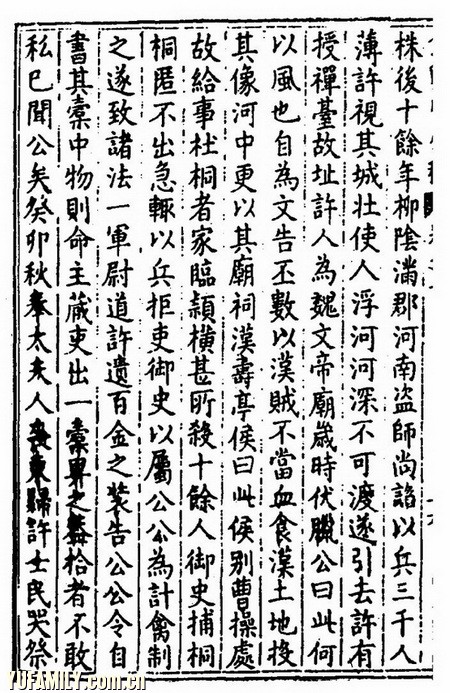 株後十餘年柳陰滿郡河南盗師尚詔以兵三千人
薄許視其城壮使人浮河河深不可渡遂引去許有
授禪臺故址許人為魏文帝廟歲時伏臘公曰此何
以風也自為文告丕數以漢賊不當血食漢土地投
其像河中更以其廟祠漢壽亭侯曰此侯别曹操處
故給事杜桐者家臨潁横甚所殺十餘人御史捕桐
桐匿不出急輒以兵拒吏御史以屬公公為計禽制
之遂致諸法一軍尉道許遺百金之装告公公令自
書其槖中物則命主藏吏出一槖畀之無拾者不敢
私已聞公矣癸卯秋奉太夫人喪東歸許士民哭祭
YUFAMILY.com.cn